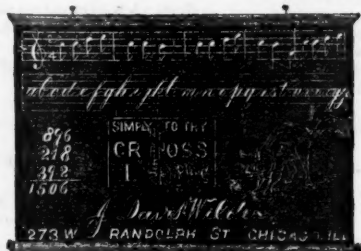 abcdefghijklmnopqrstuvwxyz
896
218
392
1506
SIMPLY TO THY
CR OSS
I
J. Davis Wilder
273 W RANDOLPH ST CHICAGO ILL